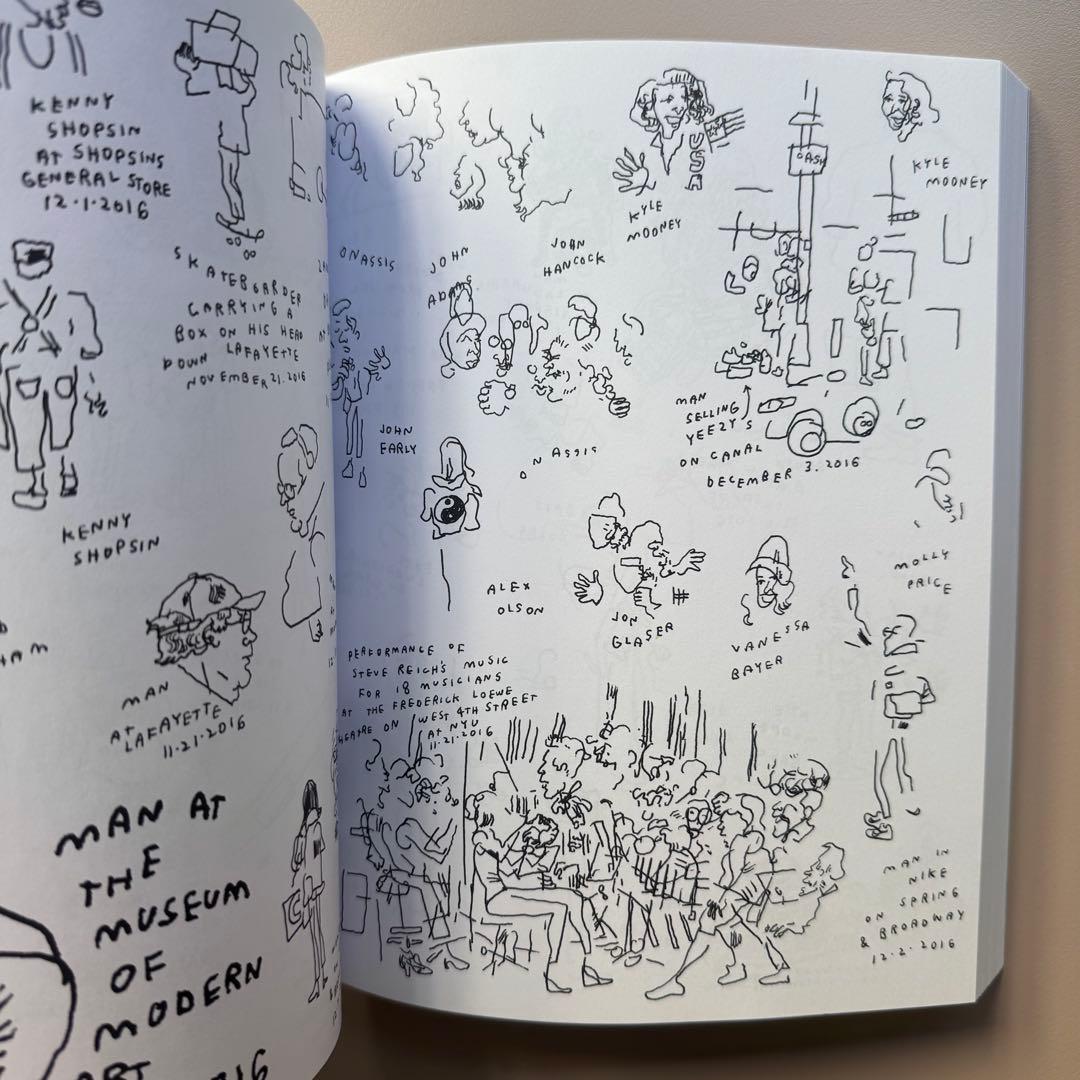 KENNY
SHOPSIN
AT SHOPSINS
GENERAL STORE
12.1.2016
SKATEBOARDER
CARRYING A
BOX ON HIS HEAD
DOWN LAFAYETTE
NOVEMBER 21.2016
KENNY
SHOPSIN
MAN
AT
LAFAYETTE
11.21.2016
MAN AT
THE
MUSEUM
OF
MODERN
ART
ONASSIS
JOHN
ADAMS
JOHN
HANCOCK
USA
KYLE
MOONEY
CASH
KYLE
MOONEY
JOHN
EARLY
ONASSIS
MAN
SELLING
YEEZY'S
ON CANAL
DECEMBER 3.2016
ALEX
OLSON
JON
GLASER
VANESSA
BAYER
MOLLY
PRICE
PERFORMANCE OF
STEVE REICH'S MUSIC
FOR 18 MUSICIANS
AT THE FREDERICK LOEWE
THEATRE ON WEST 4TH STREET
AT NYU
11.21.2016
MAN IN
NIKE
ON SPRING
& BROADWAY
12.2.2016